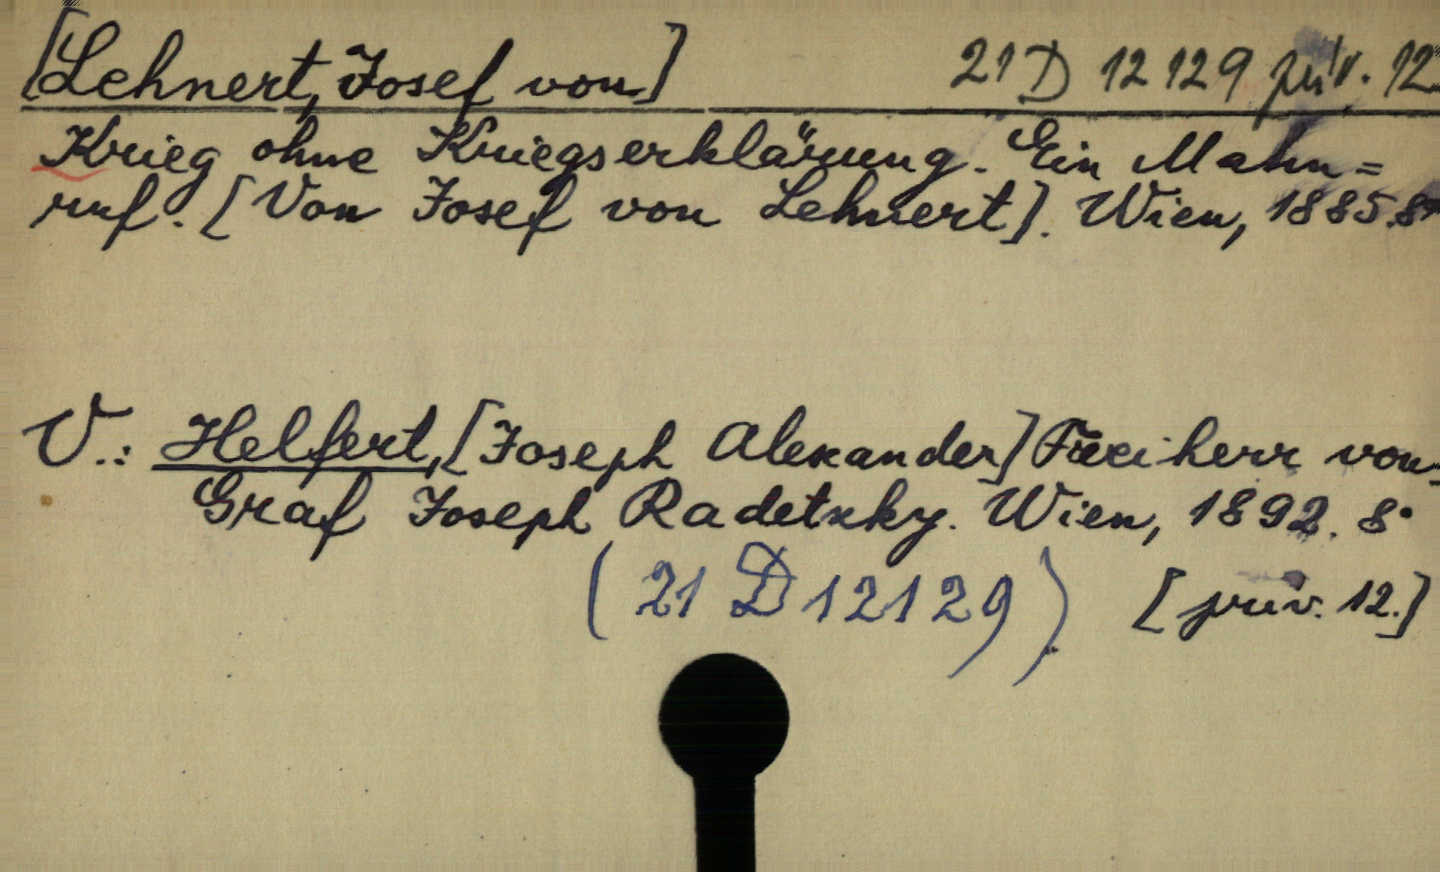 [Lehnert, Josef von] 21 D 12129 priv. 12.
Krieg ohne Kriegserklärung. Ein Mahn=
ruf. [Von Josef von Lehnert]. Wien, 1885. 8°
V.: Helfert, [Joseph Alexander] Freiherr von:
Graf Joseph Radetzky. Wien, 1892. 8°
(21 D 12129) [priv. 12.]